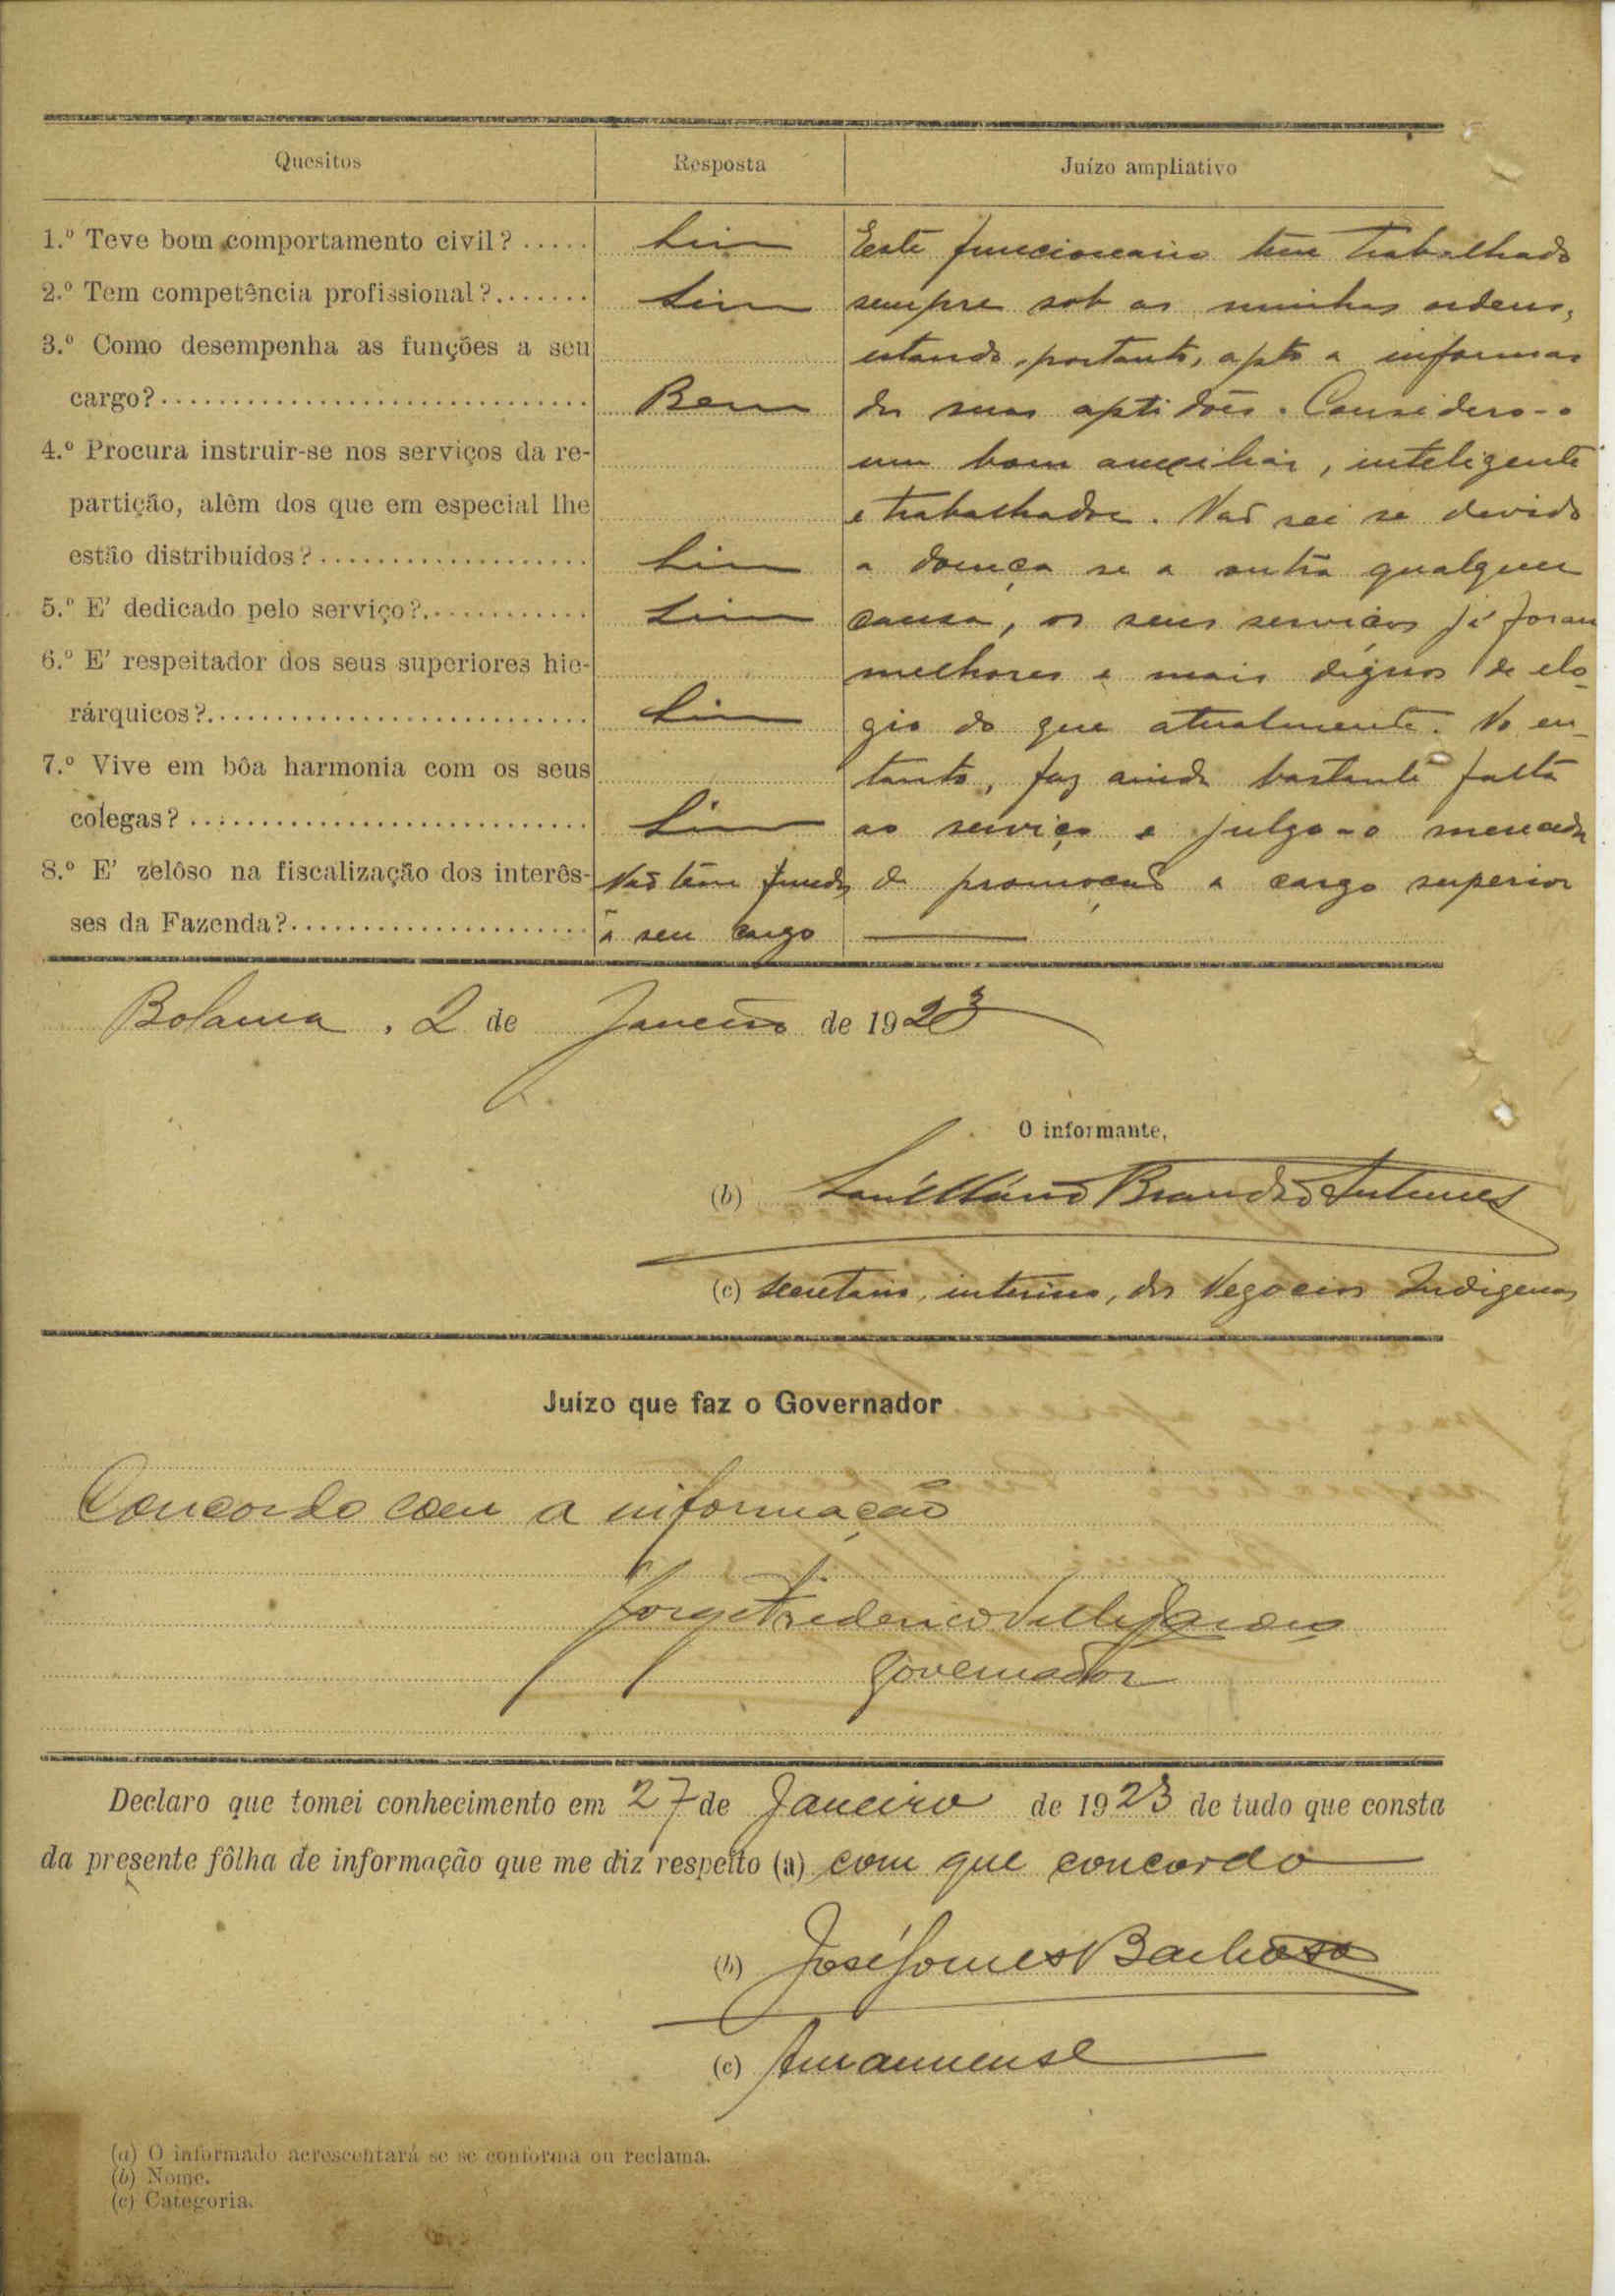 Quesitos Resposta Juízo ampliativo
1.º Teve bom comportamento civil? ..... Sim Este funcionario tem trabalhado
2.º Tem competência profissional?....... Sim sempre sob as minhas ordens,
3.º Como desempenha as funções a seu estando, portanto, apto a informar
cargo?.............................. Bem das suas aptidões. Considero-o
4.º Procura instruir-se nos serviços da re- um bom auxiliar, inteligente
partição, alêm dos que em especial lhe e trabalhador. Não sei se devido
estão distribuídos?................... Sim a doença se a outra qualquer
5.º E' dedicado pelo serviço?............ Sim causa, os seus serviços já foram
6.º E' respeitador dos seus superiores hie- melhores e mais dignos de elo-
rárquicos?.......................... Sim gio do que atualmente. No en-
7.º Vive em bôa harmonia com os seus tanto, faz ainda bastante falta
colegas?............................ Sim ao serviço e julgo-o merecedor
8.º E' zelôso na fiscalização dos interês- Não tem fundos de promoção a cargo superior
ses da Fazenda?..................... a seu cargo
Bolama, 2 de Janeiro de 1923
O informante,
(b) Brandão Antunes
(c) Secretario, interino, dos Negocios Indigenas
Juízo que faz o Governador
Concordo com a informação
Jorge Frederico Vellez Caroço
Governador
Declaro que tomei conhecimento em 27 de Janeiro de 1923 de tudo que consta
da presente fôlha de informação que me diz respeito (a) com que concordo
(b) José Gomes Barbosa
(c) Amanuense
(a) O informado acrescentará se se conforma ou reclama.
(b) Nome.
(c) Categoria.